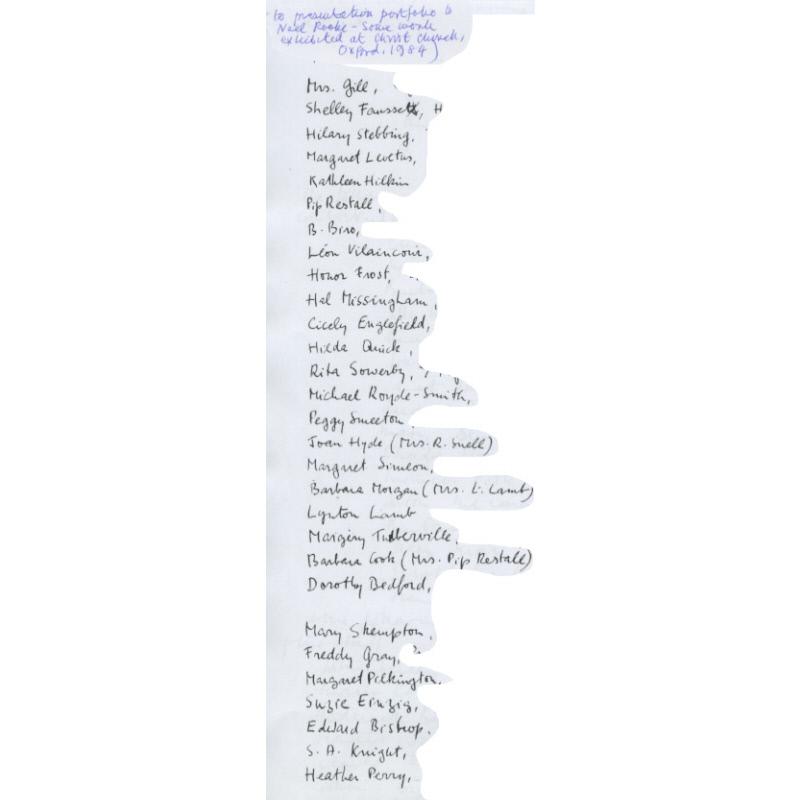 to presentation portfolio to
Noel Rooke - Some work
exhibited at Christ Church,
Oxford, 1984)
Mrs. Gill,
Shelley Fausset, H
Hilary Stebbing,
Margaret Levetus,
Kathleen Hilken
Pip Restall,
B. Biro,
Léon Vilaincour,
Honor Frost,
Hal Missingham,
Cicely Englefield,
Hilda Quick,
Rita Sowerby,
Michael Royde-Smith,
Peggy Smeeton
Joan Hyde (Mrs. R. Snell)
Margaret Simeon,
Barbara Morgan (Mrs. L. Lamb)
Lynton Lamb
Margery Tutberville,
Barbara Cook (Mrs. Pip Restall)
Dorothy Bedford,
Mary Shempton,
Freddy Gray,
Margaret Pilkington,
Suzie Einzig,
Edward Bishop,
S. A. Knight,
Heather Perry,